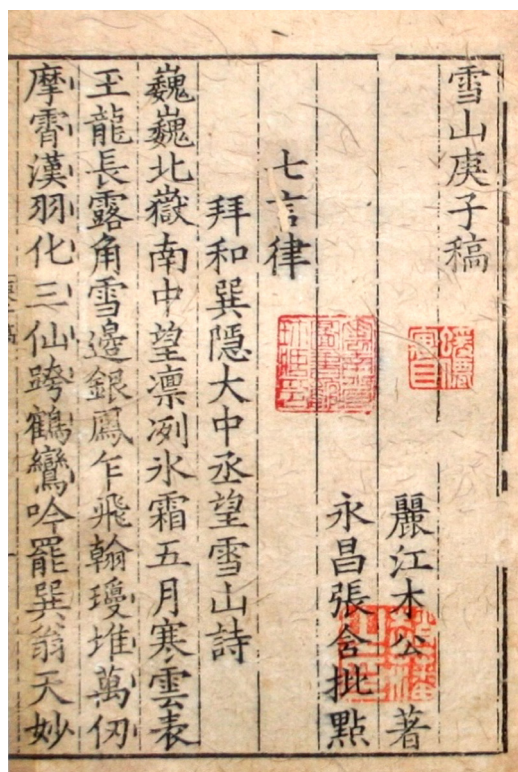 雪山庚子稿
麗江木公著
永昌張含批點
七言律
拜和巽隱大中丞望雪山詩
巍巍北嶽南中望凛冽氷霜五月寒雲表
玉龍長露角雪邊銀鳳乍飛翰瓊堆萬仞
摩霄漢羽化三仙跨鶴鸞吟罷巽翁天妙